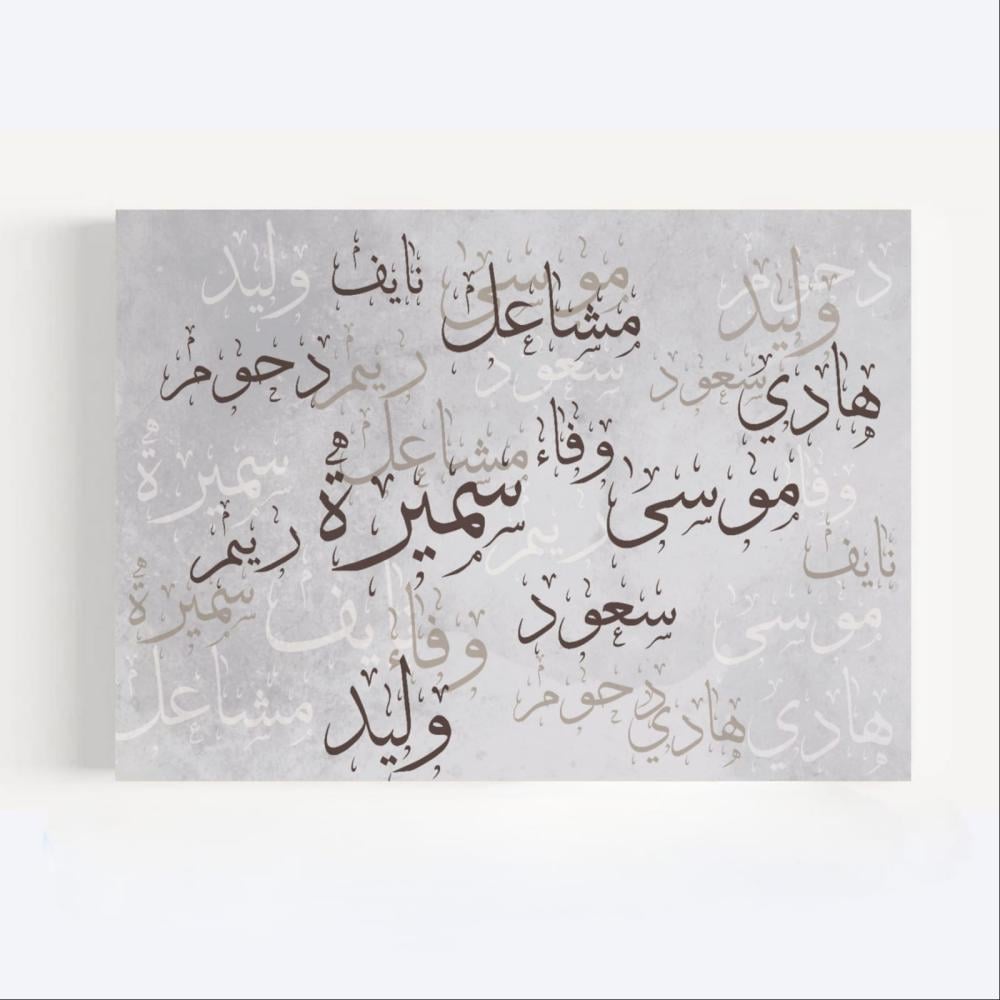 وليد نايف موسى دحوم
مشاعل وليد
دحوم ريم سعود سعود هادي
مشاعل وفاء
سميرة سميرة موسى وفاء
ريم ريم نايف
سميرة نايف وفاء سعود موسى
مشاعل وليد دحوم هادي هادي